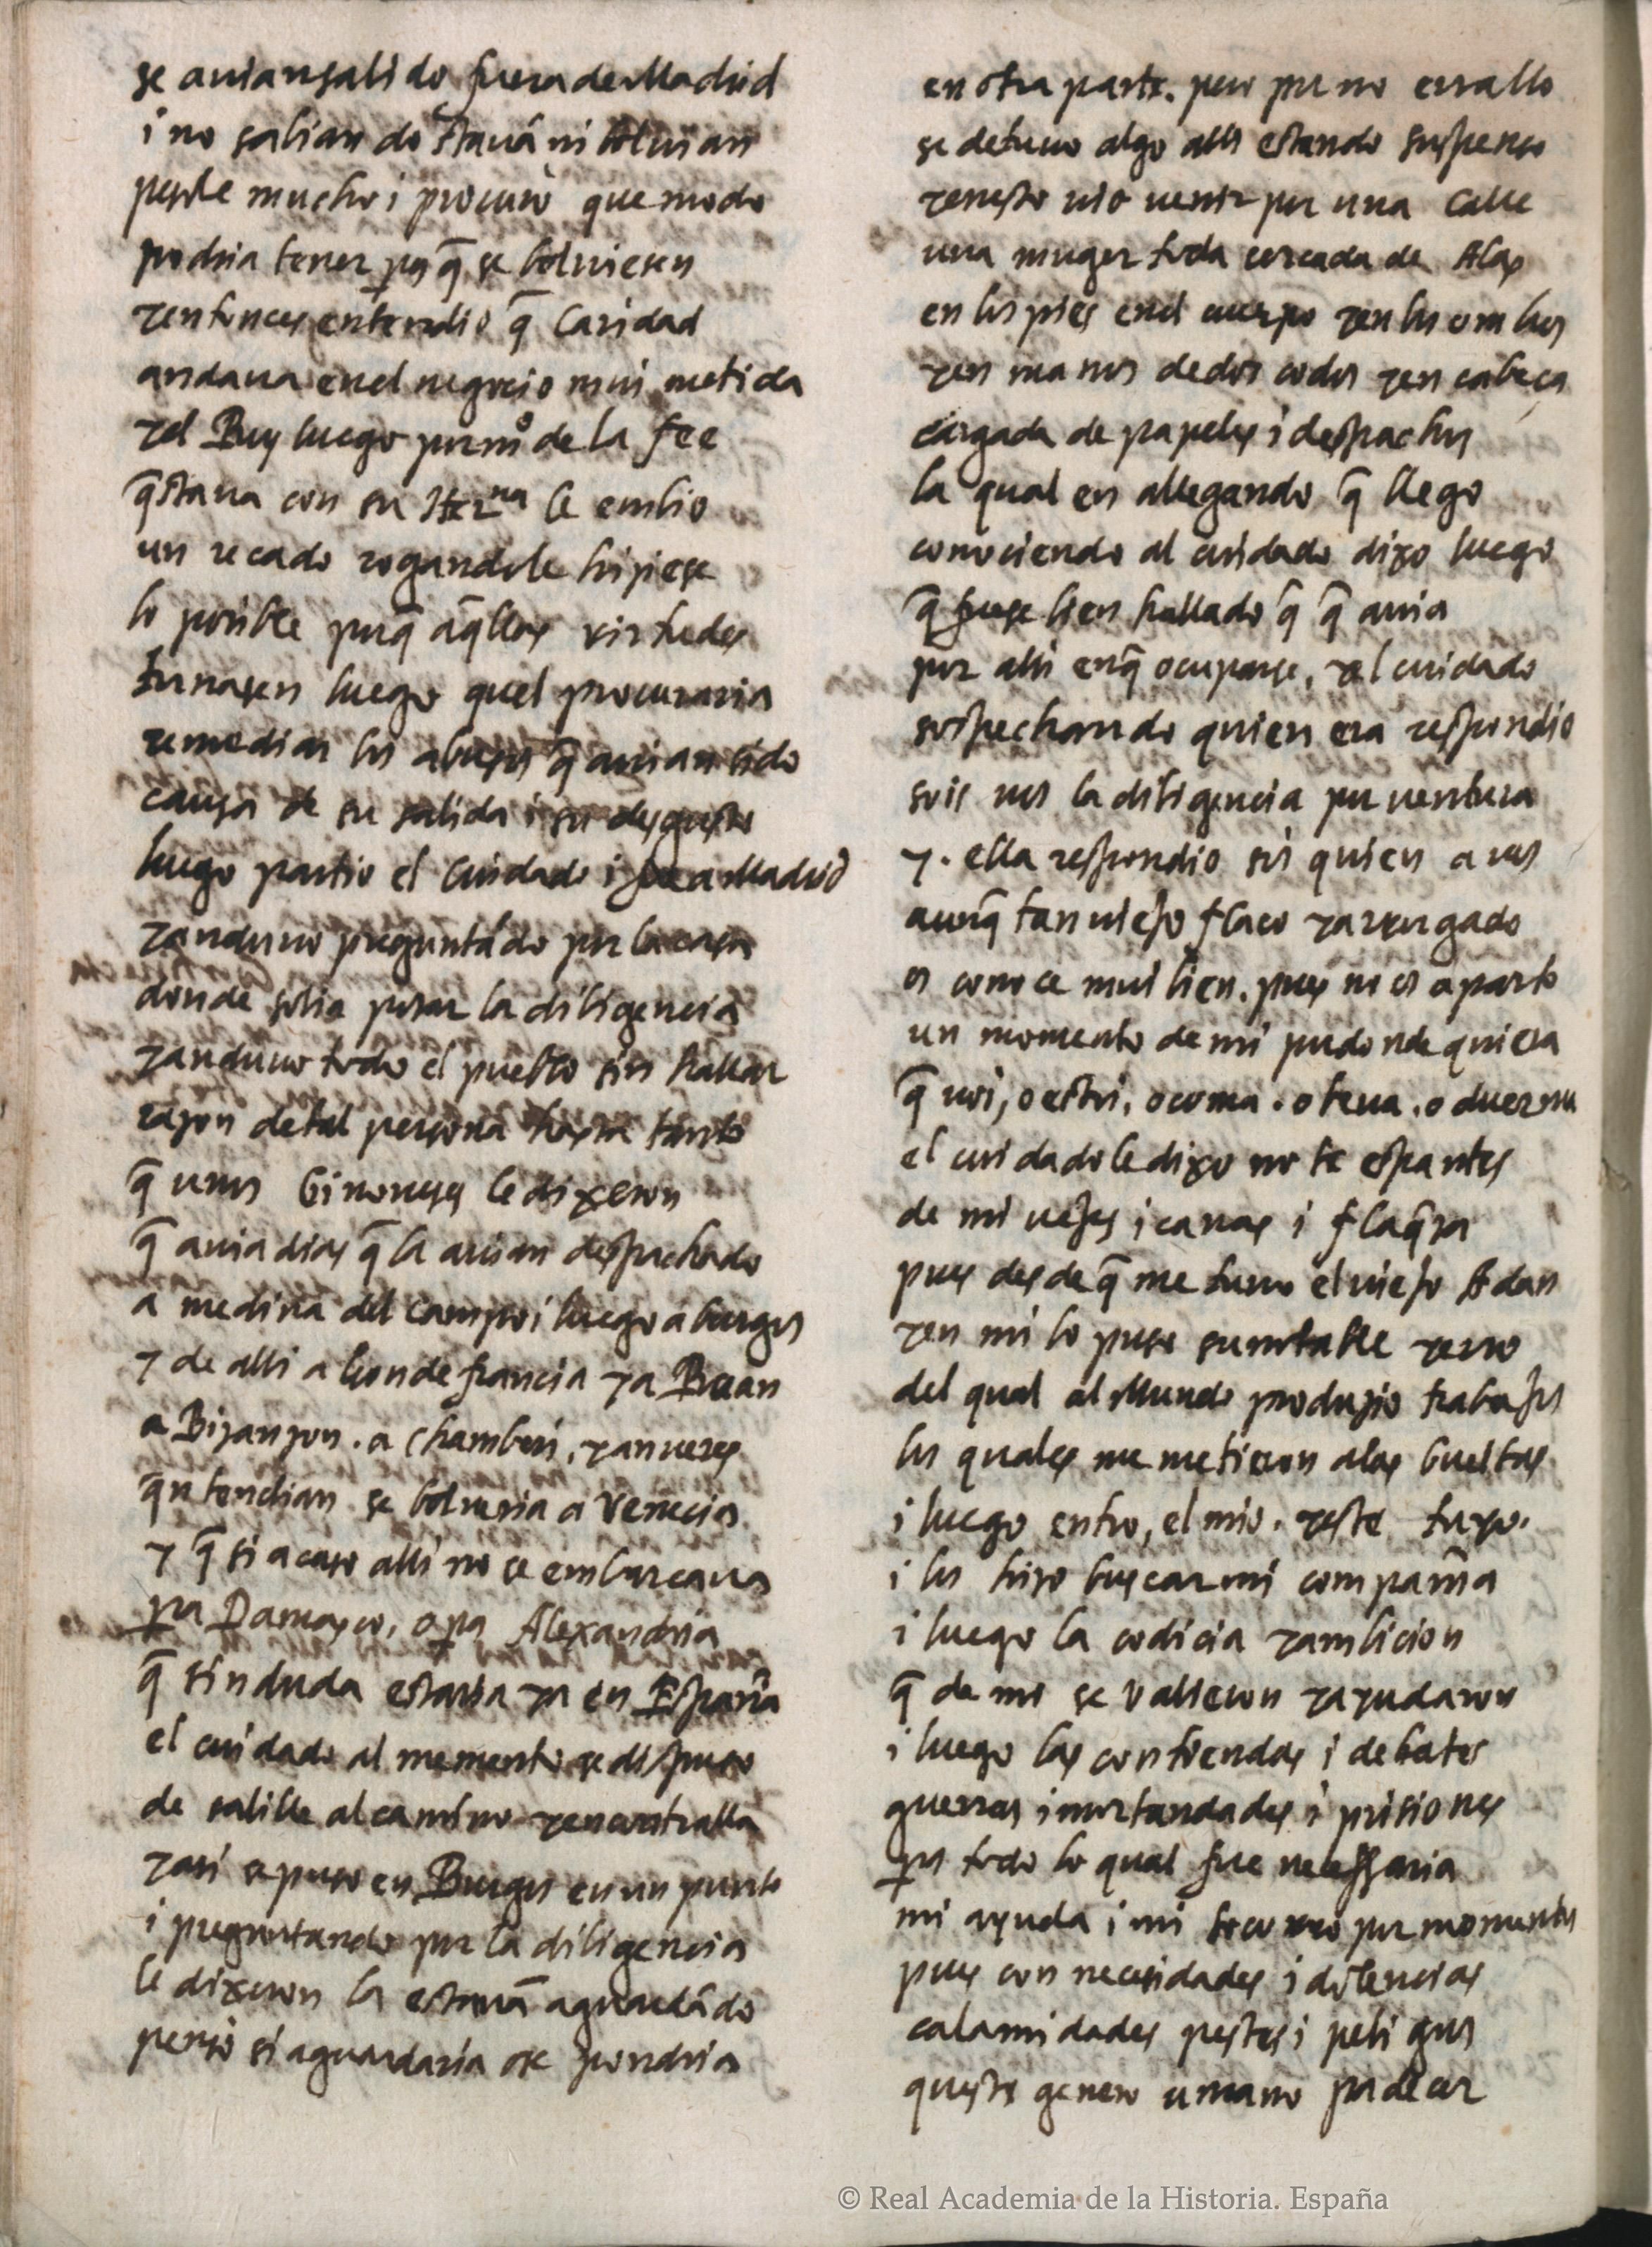 se auian salido fuera de Madrid
i no sabian do stauā ni boluian
pesole mucho i procuro que modo
podria tener pa q̄ se boluiesen
y entonces entendio q̄ Caridad
andaua en el negocio mui metida
y el Rey luego por mº de la fee
q̄staua con su Herna le embio
un recado rogandole hiziese
lo posible porq̄ aq̄llas virtudes
tornasen luego quel procuraria
remediar los abusos q̄ auian sido
causa de su salida i su desgusto
luego partio el Cuidado i fue a Madrid
y anduuo preguntādo por la casa
donde solia posar la diligencia
y anduuo todo el pueblo sin hallar
razon de tal persona hasta tanto
q̄ unos Ginoueses le dixeron
q̄ auia dias q̄ la auian despachado
a medina del campo i luego a burgos
y de alli a leon de francia y a Ruan
a Bizanzon . a Chamberi, y anueres
q̄ntendian se bolueria a Venecia
y q̄ si acaso alli no se embarcaua
pa Damasco, o pa Alexandria
q̄ sin duda estaria ya en España
el cuidado al momento se dispuso
de salille al camino y encontralla
y asi se puso en Burgos en un punto
i preguntando por la diligencia
le dixeron la estauā aguardādo
penso si aguardaria o se pondria
en otra parte. pero por no errallo
se detuuo algo alli estando suspenso
y en esto vio uenir por una calle
una muger toda cercada de Alas
en los pies en el cuerpo y en los ombros
y en manos dedos codos y en cabeça
cargada de papeles i despachos
la qual en allegando q̄ llego
conociendo al cuidado dixo luego
q̄ fuese bien hallado q̄ q̄ auia
por alli enq̄ ocuparse, y el cuidado
sospechando quien era respondio
sois vos la diligencia por ventura
y . ella respondio soi quien a vos
aunq̄ tan viejo flaco y arrugado
os conoce mui bien. pues no os aparto
un momento de mi por donde quiera
q̄ voi, o estoi, o coma . o beua . o duerma
el cuidado le dixo no te espantes
de mi vejes i canas i flaq̄za
pues desde q̄ me tuuo el viejo Adan
y en mi lo puso su notable yerro
del qual al Mundo produzio trabajos
los quales me metieron a las bueltas
i luego entro, el mio . y este tuyo .
i los hizo buscar mi compañia
i luego la codicia y ambicion
q̄ de mi se valieron y ayudaron
i luego las contiendas i debates
guerras i mortandades i prisiones
pa todo lo qual fue necessaria
mi ayuda i mi socorro por momentos
pues con necesidades i dolencias
calamidades pestes i peligros
queste genero umano padecer